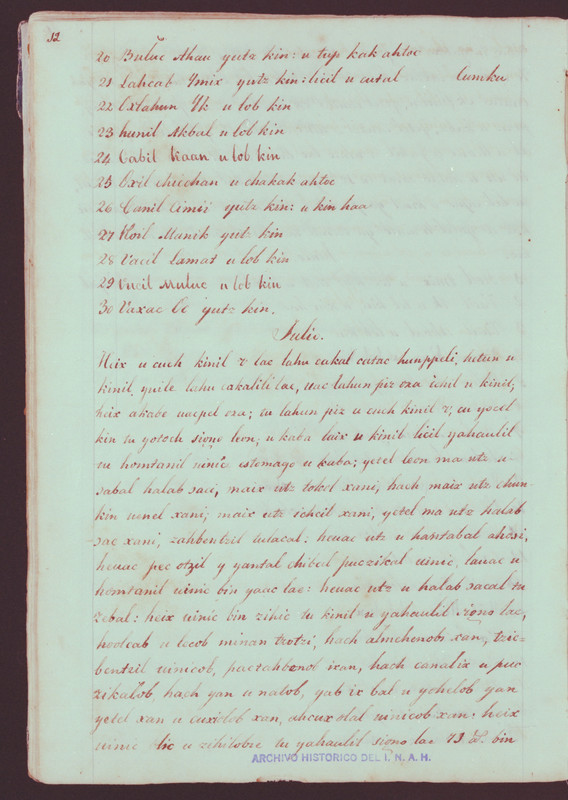 12
20 Buluc Ahau yutz kin: u tup kak ahtoc
21 Lahcab Ymix yutz kin: licil u cutal Cumku
22 Oxlahun Yk u lob kin
23 hunil Akbal u lob kin
24 Cabil Kaan u lob kin
25 Oxil chicchan u chakak ahtoc
26 Canil Cimii yutz kin: u kin haa
27 Hoil Manik yutz kin
28 Uacil Lamat u lob kin
29 Uucil Muluc u lob kin
30 Uaxac Oc yutz kin.
Julio.
Heix u cuch kinil lae lahu cakal catac hunppeli, hetun u
kinil, yuile lahu cakalili lae, uac lahun piz ora ichil u kinil,
heix akabe uacpel ora; tu lahun piz u cuch kinil; cu yocol
kin tu yotoch signo leon, u kaba laix u kinil licil yahaulil
tu homtanil uinic estomago u kaba; yetel leon ma utz u
sabal halab saci, maix utz tokol xani, hach maix utz chun-
kin uenel xani, maix utz ichcil xani, yetel ma utz halab
sac xani, zahbentzil tulacal: heuac utz u hantabal ahoxi,
heuac pec otzil y yantal chibal puczikal uinic, lauac u
homtanil uinic bin yanac lae: heuac utz u halab sacal tu
zebal: heix uinic bin zihic tu kinil u yahaulil signo lae,
hoolcab u lecob minan tzotzi, hach almehenobi xan, tzic-
bentzil uinicob, paczahbenob ixan, hach canalix u puc
zikalob, hach yan u nalob, yab ix bal u yohelob yan
yetel xan u cuxolob xan, ahcux olal uinicob xan: heix
uinic lic u zihilobe tu yahaulil signo lae 73 bin
ARCHIVO HISTORICO DEL I. N. A. H.